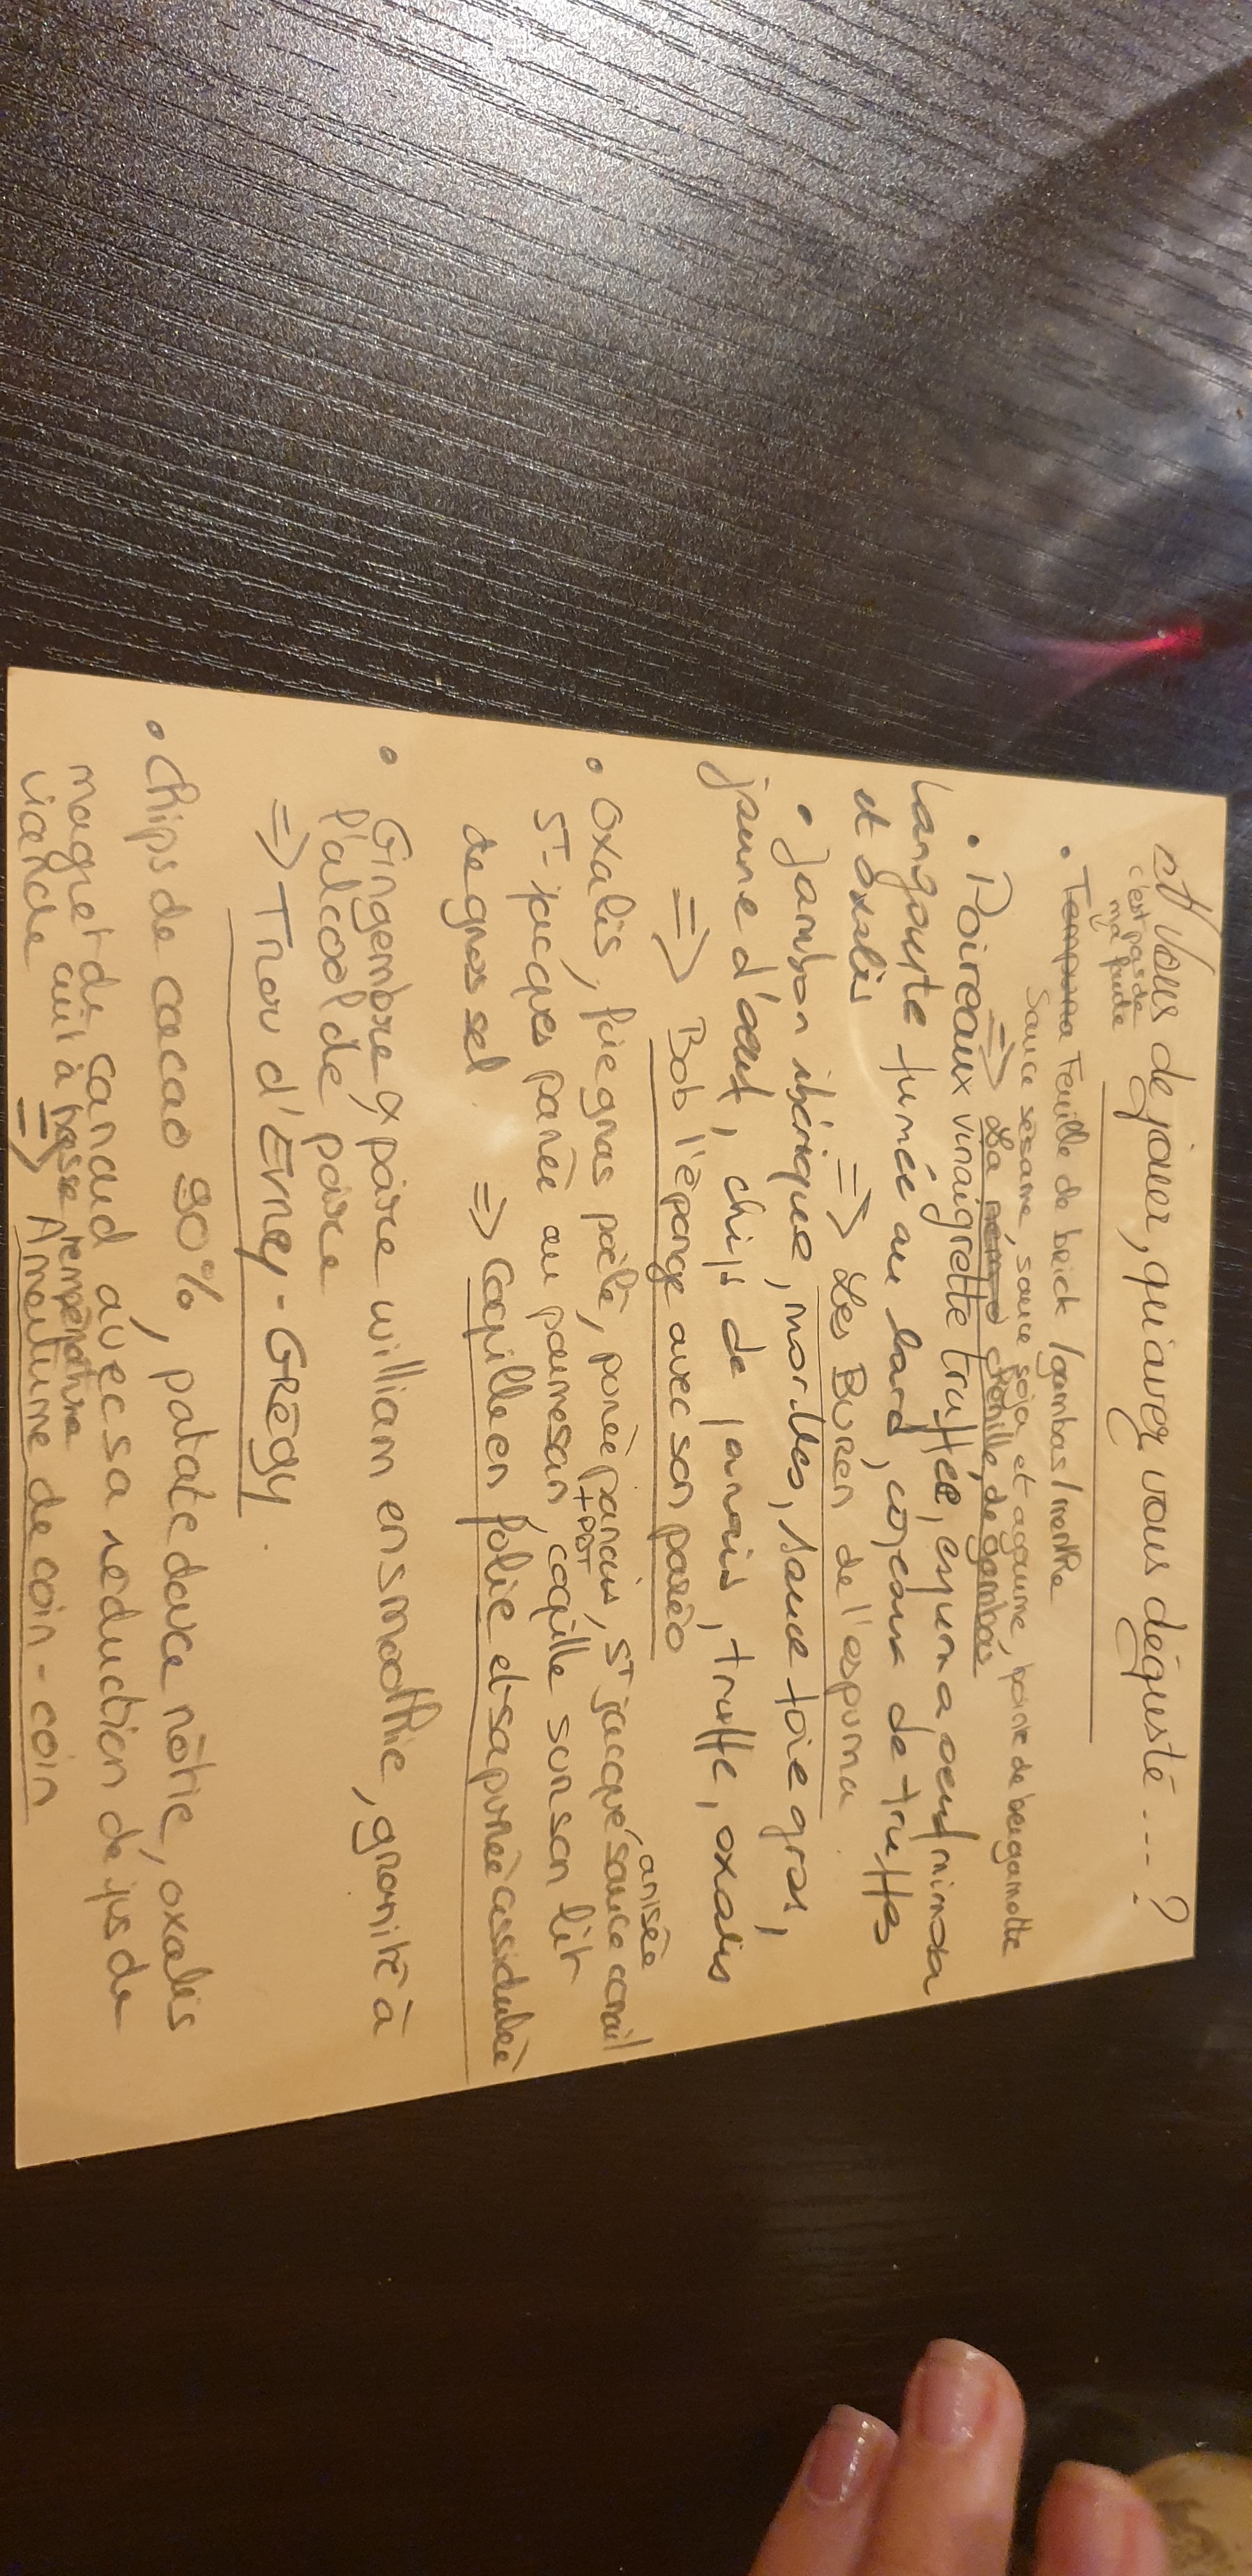 À Vous de jouer, qu'avez vous dégusté ... ?
c'est pas de
ma faute
• Tempura Feuille de brick / gambas / menthe
Sauce sésame, sauce soja et agrume, pointe de bergamotte
=> La chenille de gambas
• Poireaux vinaigrette truffée, espuma oeuf mimosa
Langouste fumée au lard, copeaux de truffes
et oxalis => Les Buren de l'espuma
• jambon ibérique, morilles, sauce foie gras,
jaune d'oeuf, chips de panais, truffe, oxalis
=> Bob l'éponge avec son paréo
anisée
• Oxalis, foie gras poêlé, purée panais, St jacques sauce corail
+ PDT
St-jacques panée au parmesan, coquille sur son lit
de gros sel => Coquille en folie et sa purée assidulée
• Gingembre & poire william en smoothie, granité à
l'alcool de poire
=> Trou d'Erney-Grégy
• Chips de cacao 90%, patate douce rôtie, oxalis
magret de canard avec sa reduction de jus de
viande cuit à basse température
=> Amertume de coin-coin